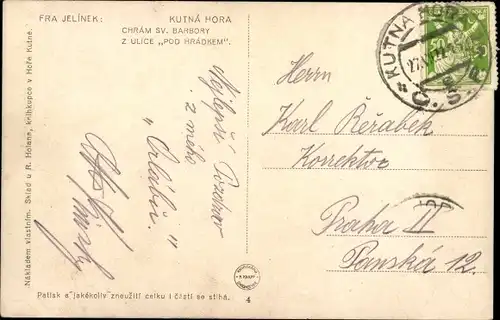 FRA JELÍNEK: KUTNÁ HORA
CHRÁM SV. BARBORY
Z ULICE „POD HRÁDKEM".
Nejlepší Pozdrav
z mého
"
Herrn
Karl Řeřabek
Korrektor
Praha II
Panská 12.
KUTNÁ HORA
Č.S.
Nákladem vlastním. Sklad u R. Holana, knihkupce v Hoře Kutné.
Patisk a jakékoliv zneužití celku i částí se stíhá.
4